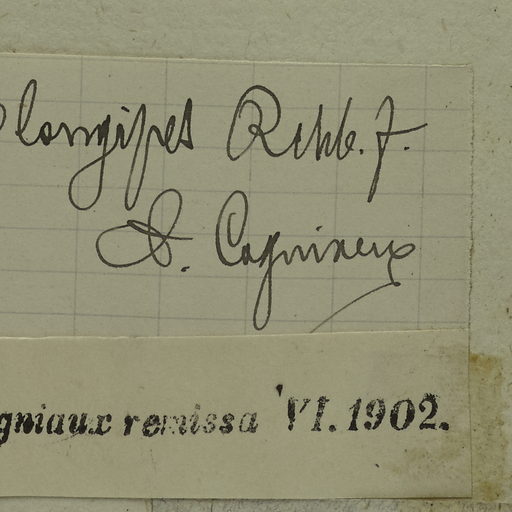 longipes Rchb. f.
A. Cogniaux
gniaux remissa VI. 1902.